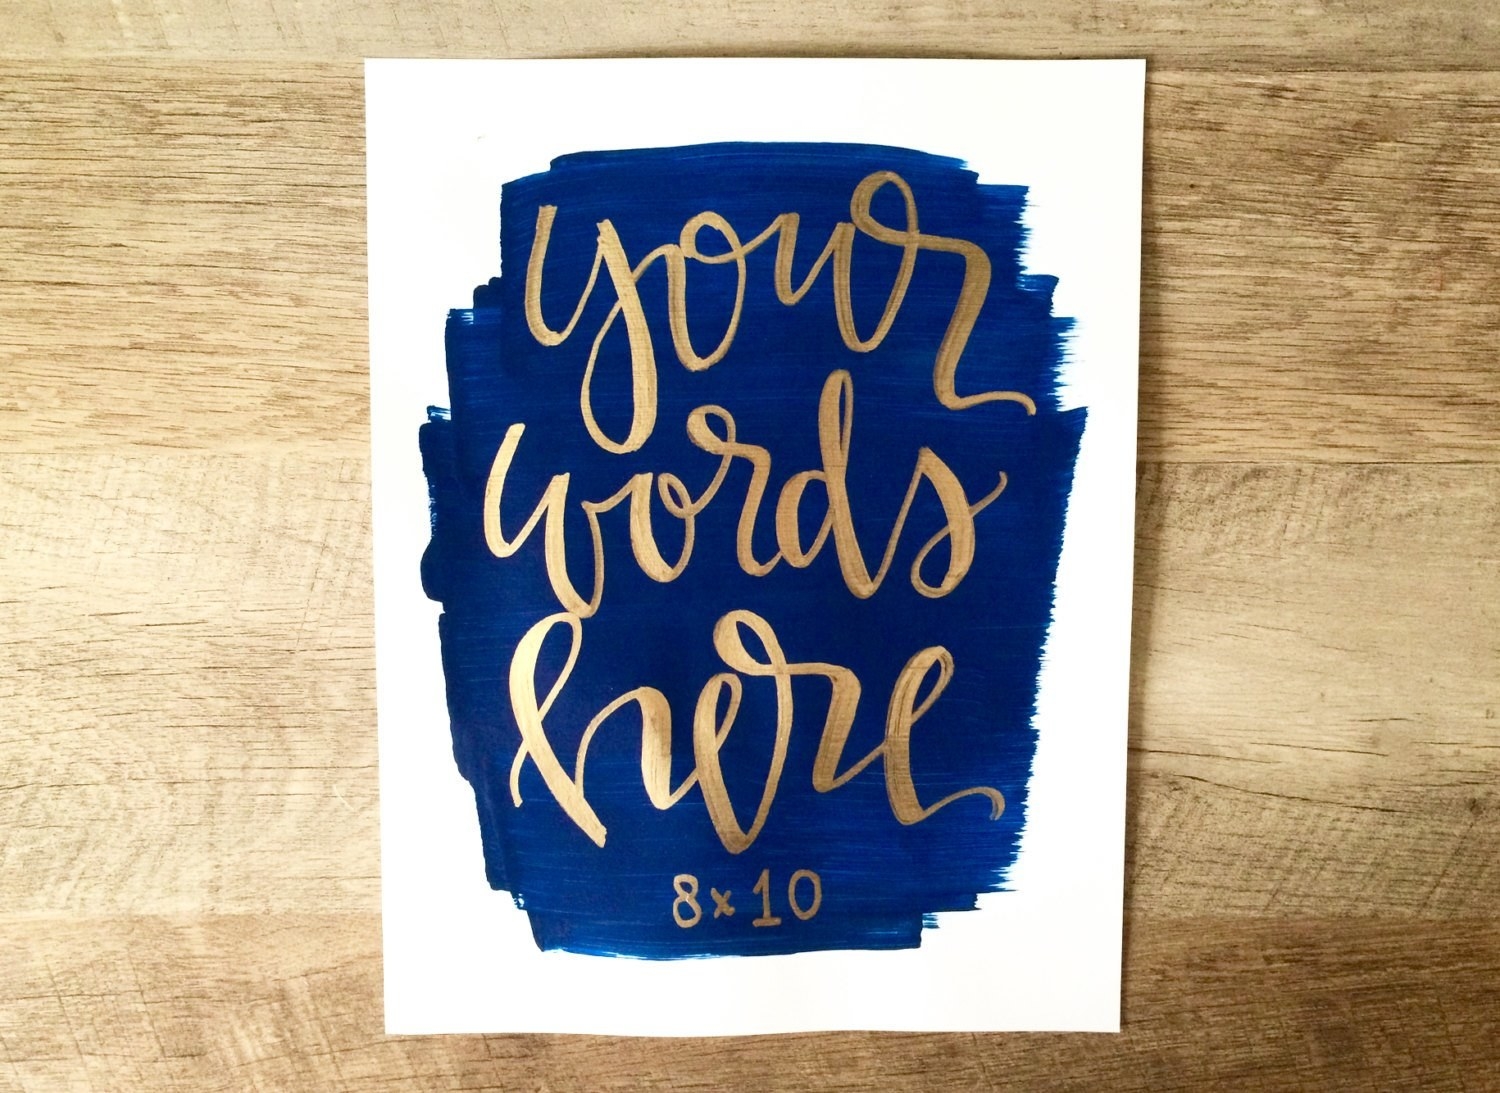 your
words
here
8x10